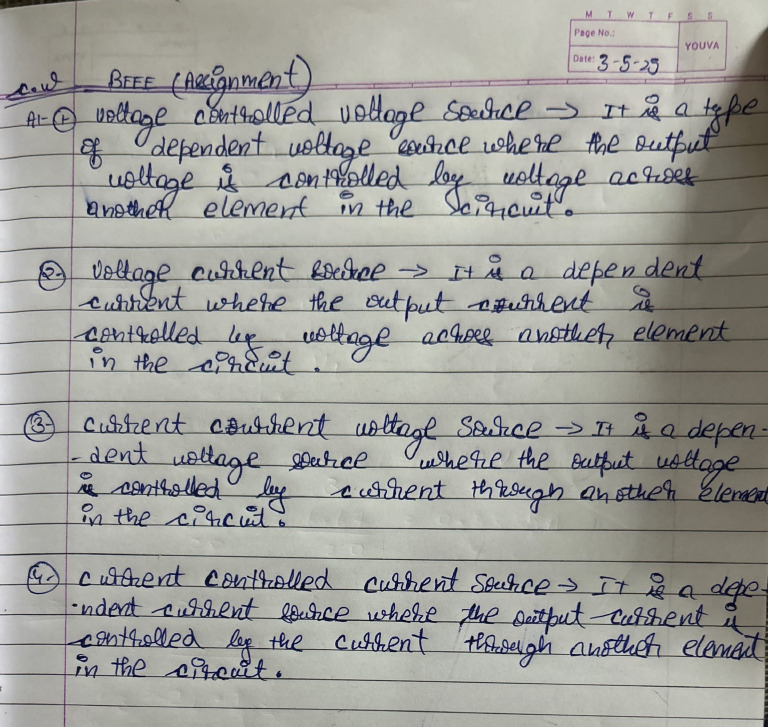 M T W T F S S
Page No.:
Date: 3-5-25
YOUVA
C.W BEEE (Assignment)
A1- ① voltage controlled voltage source → It is a type
of dependent voltage source where the output
voltage is controlled by voltage across
another element in the circuit.
②- voltage current source → It is a dependent
current where the output current is
controlled by voltage across another element
in the circuit.
③- current current voltage source → It is a depen-
-dent voltage source where the output voltage
is controlled by current through another element
in the circuit.
④- current controlled current source → It is a depe-
-ndent current source where the output current is
controlled by the current through another element
in the circuit.